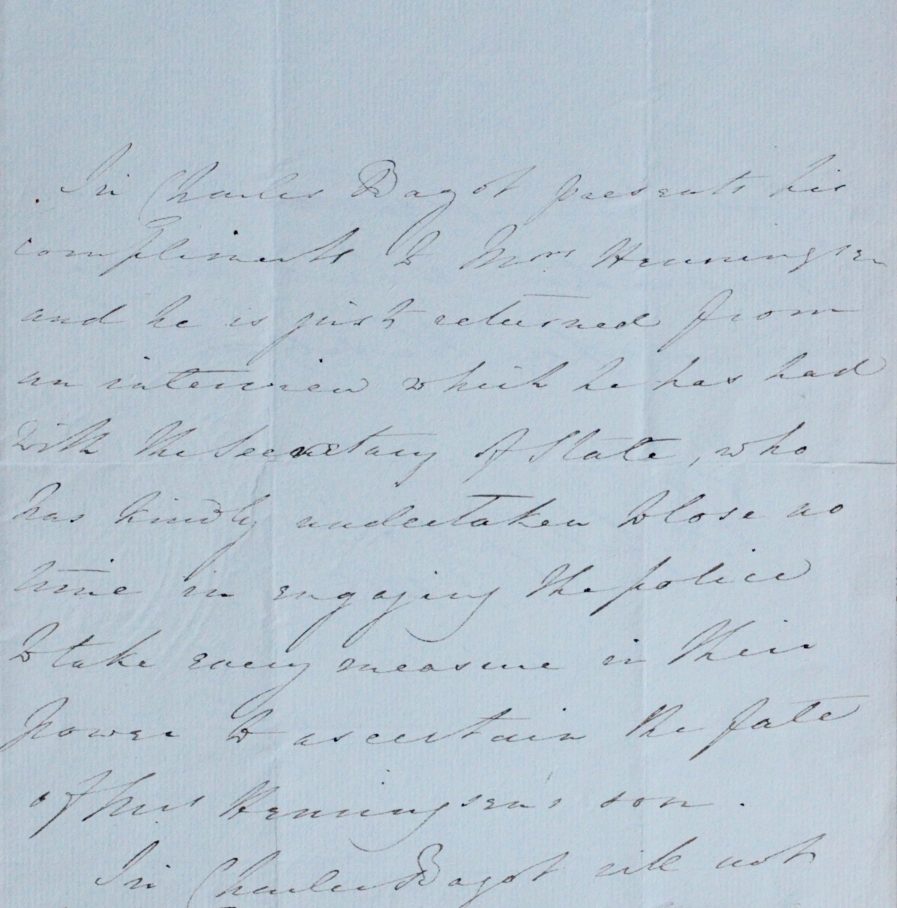 Sir Charles Bagot presents his
compliments to Mrs Henningsen
and he is just returned from
an interview which he has had
with the Secretary of State, who
has kindly undertaken to lose no
time in engaging the police
to take every measure in their
power to ascertain the fate
of Mrs Henningsen's son.
Sir Charles Bagot will not